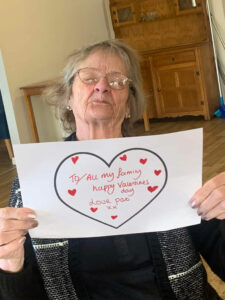 To All my family
happy Valentines
day
Love pat
xx